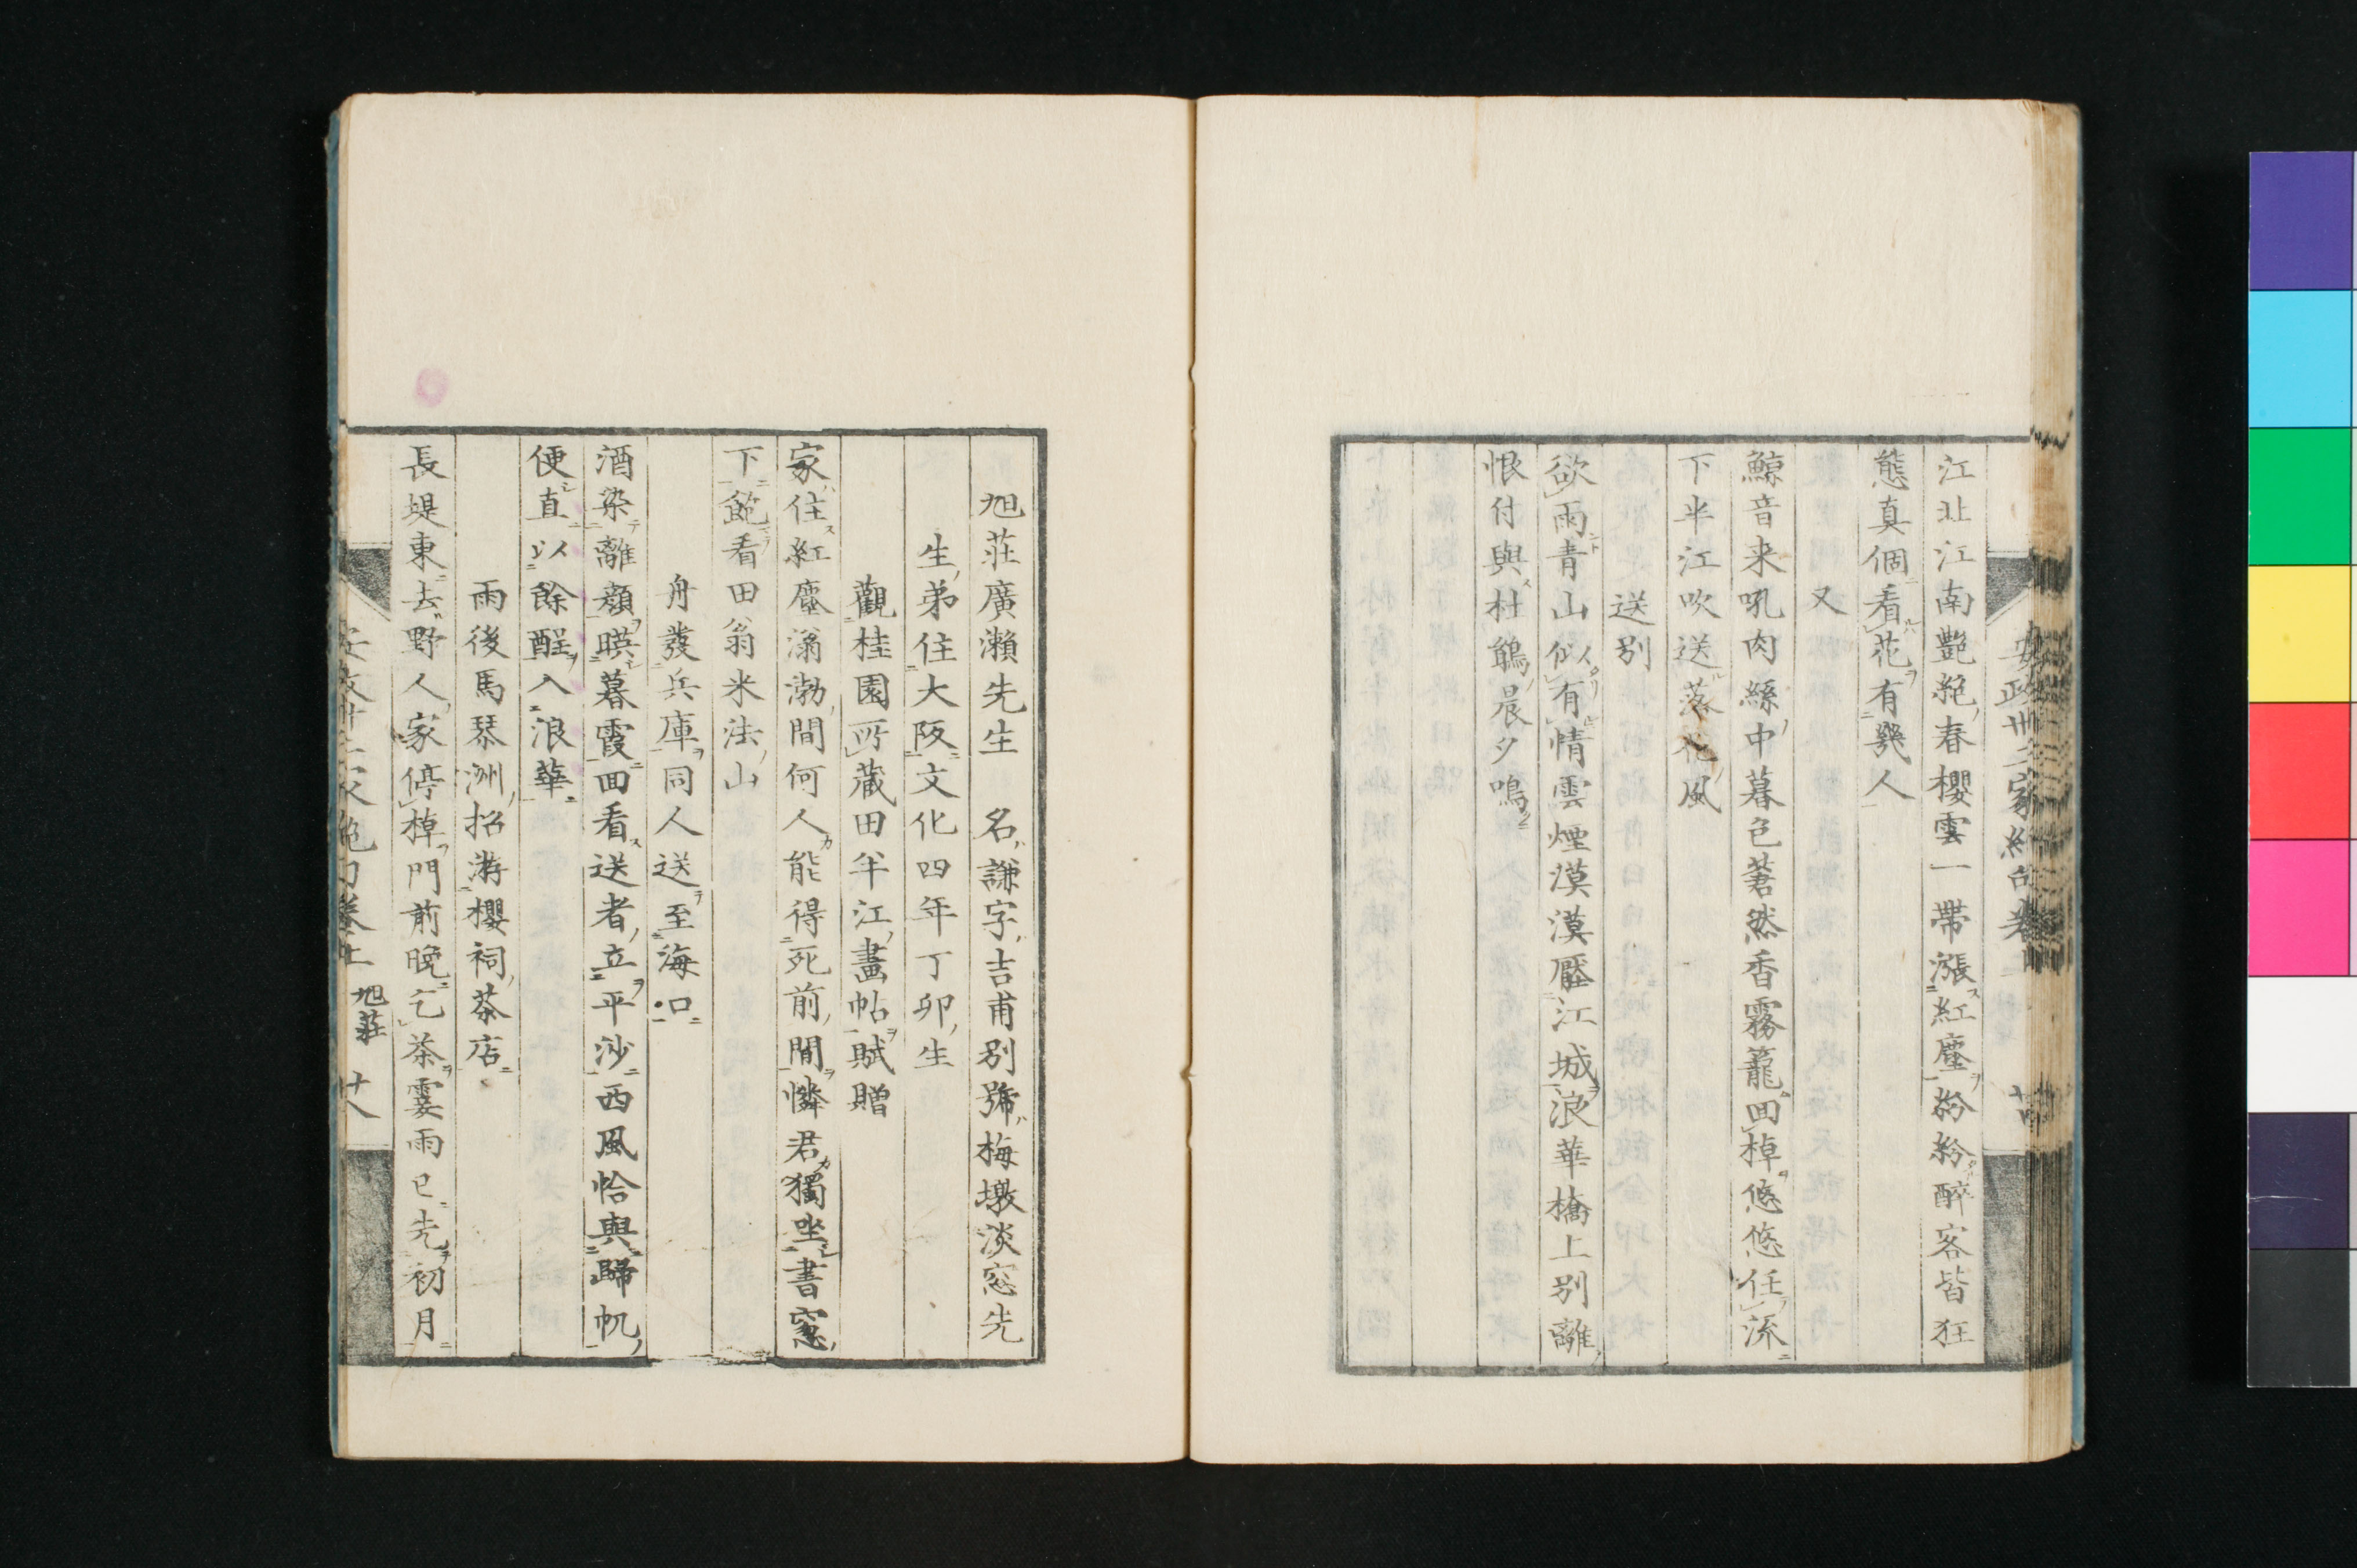 江北江南艷絶春櫻雲一帶漲紅塵紛紛醉客皆狂
態真個看花有幾人
又
鯨音来吼肉絲中暮色蒼然香霧籠回棹悠悠任流
下半江吹送落花風
送別
欲雨青山似有情雲煙漠漠壓江城浪華橋上別離
恨付與杜鵑晨夕鳴
旭莊廣瀨先生 名謙字吉甫別號梅墩淡窓先
生弟住大阪文化四年丁卯生
觀桂園所藏田半江畫帖賦贈
家住紅塵滃渤間何人能得死前閒憐君獨坐書窻
下飽看田翁米法山
舟發兵庫同人送至海口
酒染離顏暎暮霞回看送者立平沙西風恰與歸帆
便直以餘酲入浪華
雨後馬琴洲招游櫻祠茶店
長堤東去野人家停棹門前晩乞茶霎雨已先初月
旭莊 廿八